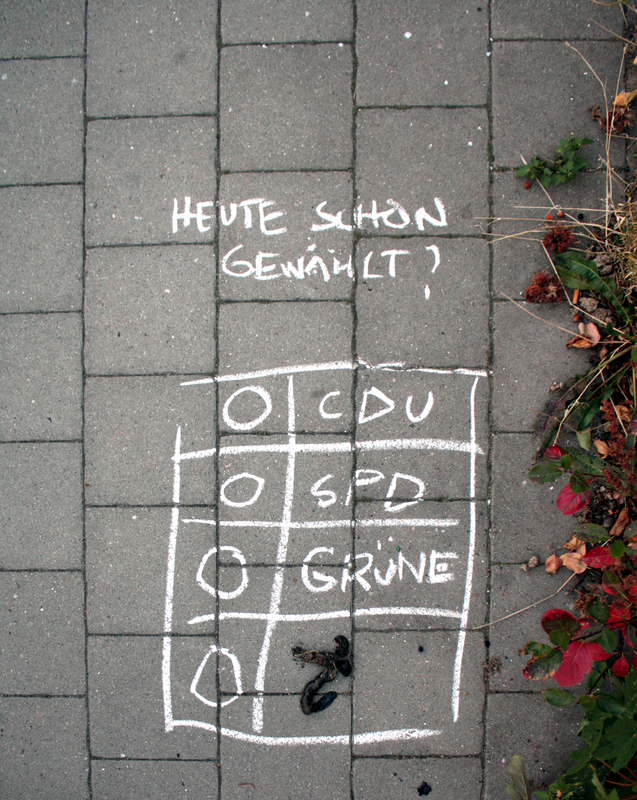 HEUTE SCHON
GEWÄHLT?
O CDU
O SPD
O GRÜNE
O